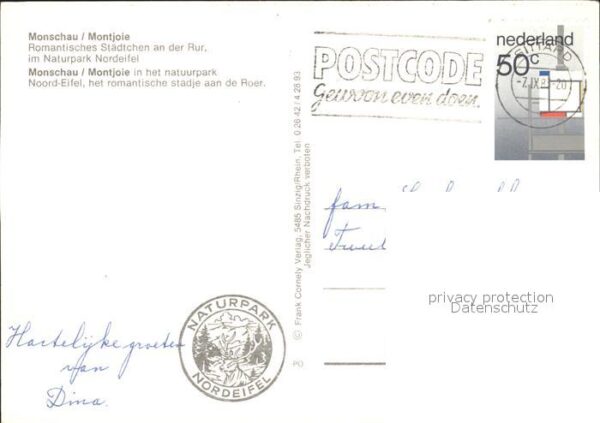 Monschau / Montjoie
Romantisches Städtchen an der Rur,
im Naturpark Nordeifel
Monschau / Montjoie in het natuurpark
Noord-Eifel, het romantische stadje aan de Roer.
POSTCODE
gewoon even doen.
SITTARD
-7.IX.8
nederland
50c
© Frank Cornely Verlag, 5485 Sinzig/Rhein, Tel. 0 26 42 / 4 28 93
Jeglicher Nachdruck verboten
fam
privacy protection
Datenschutz
NATURPARK
NORDEIFEL
Hartelijke groeten
van
Dina.